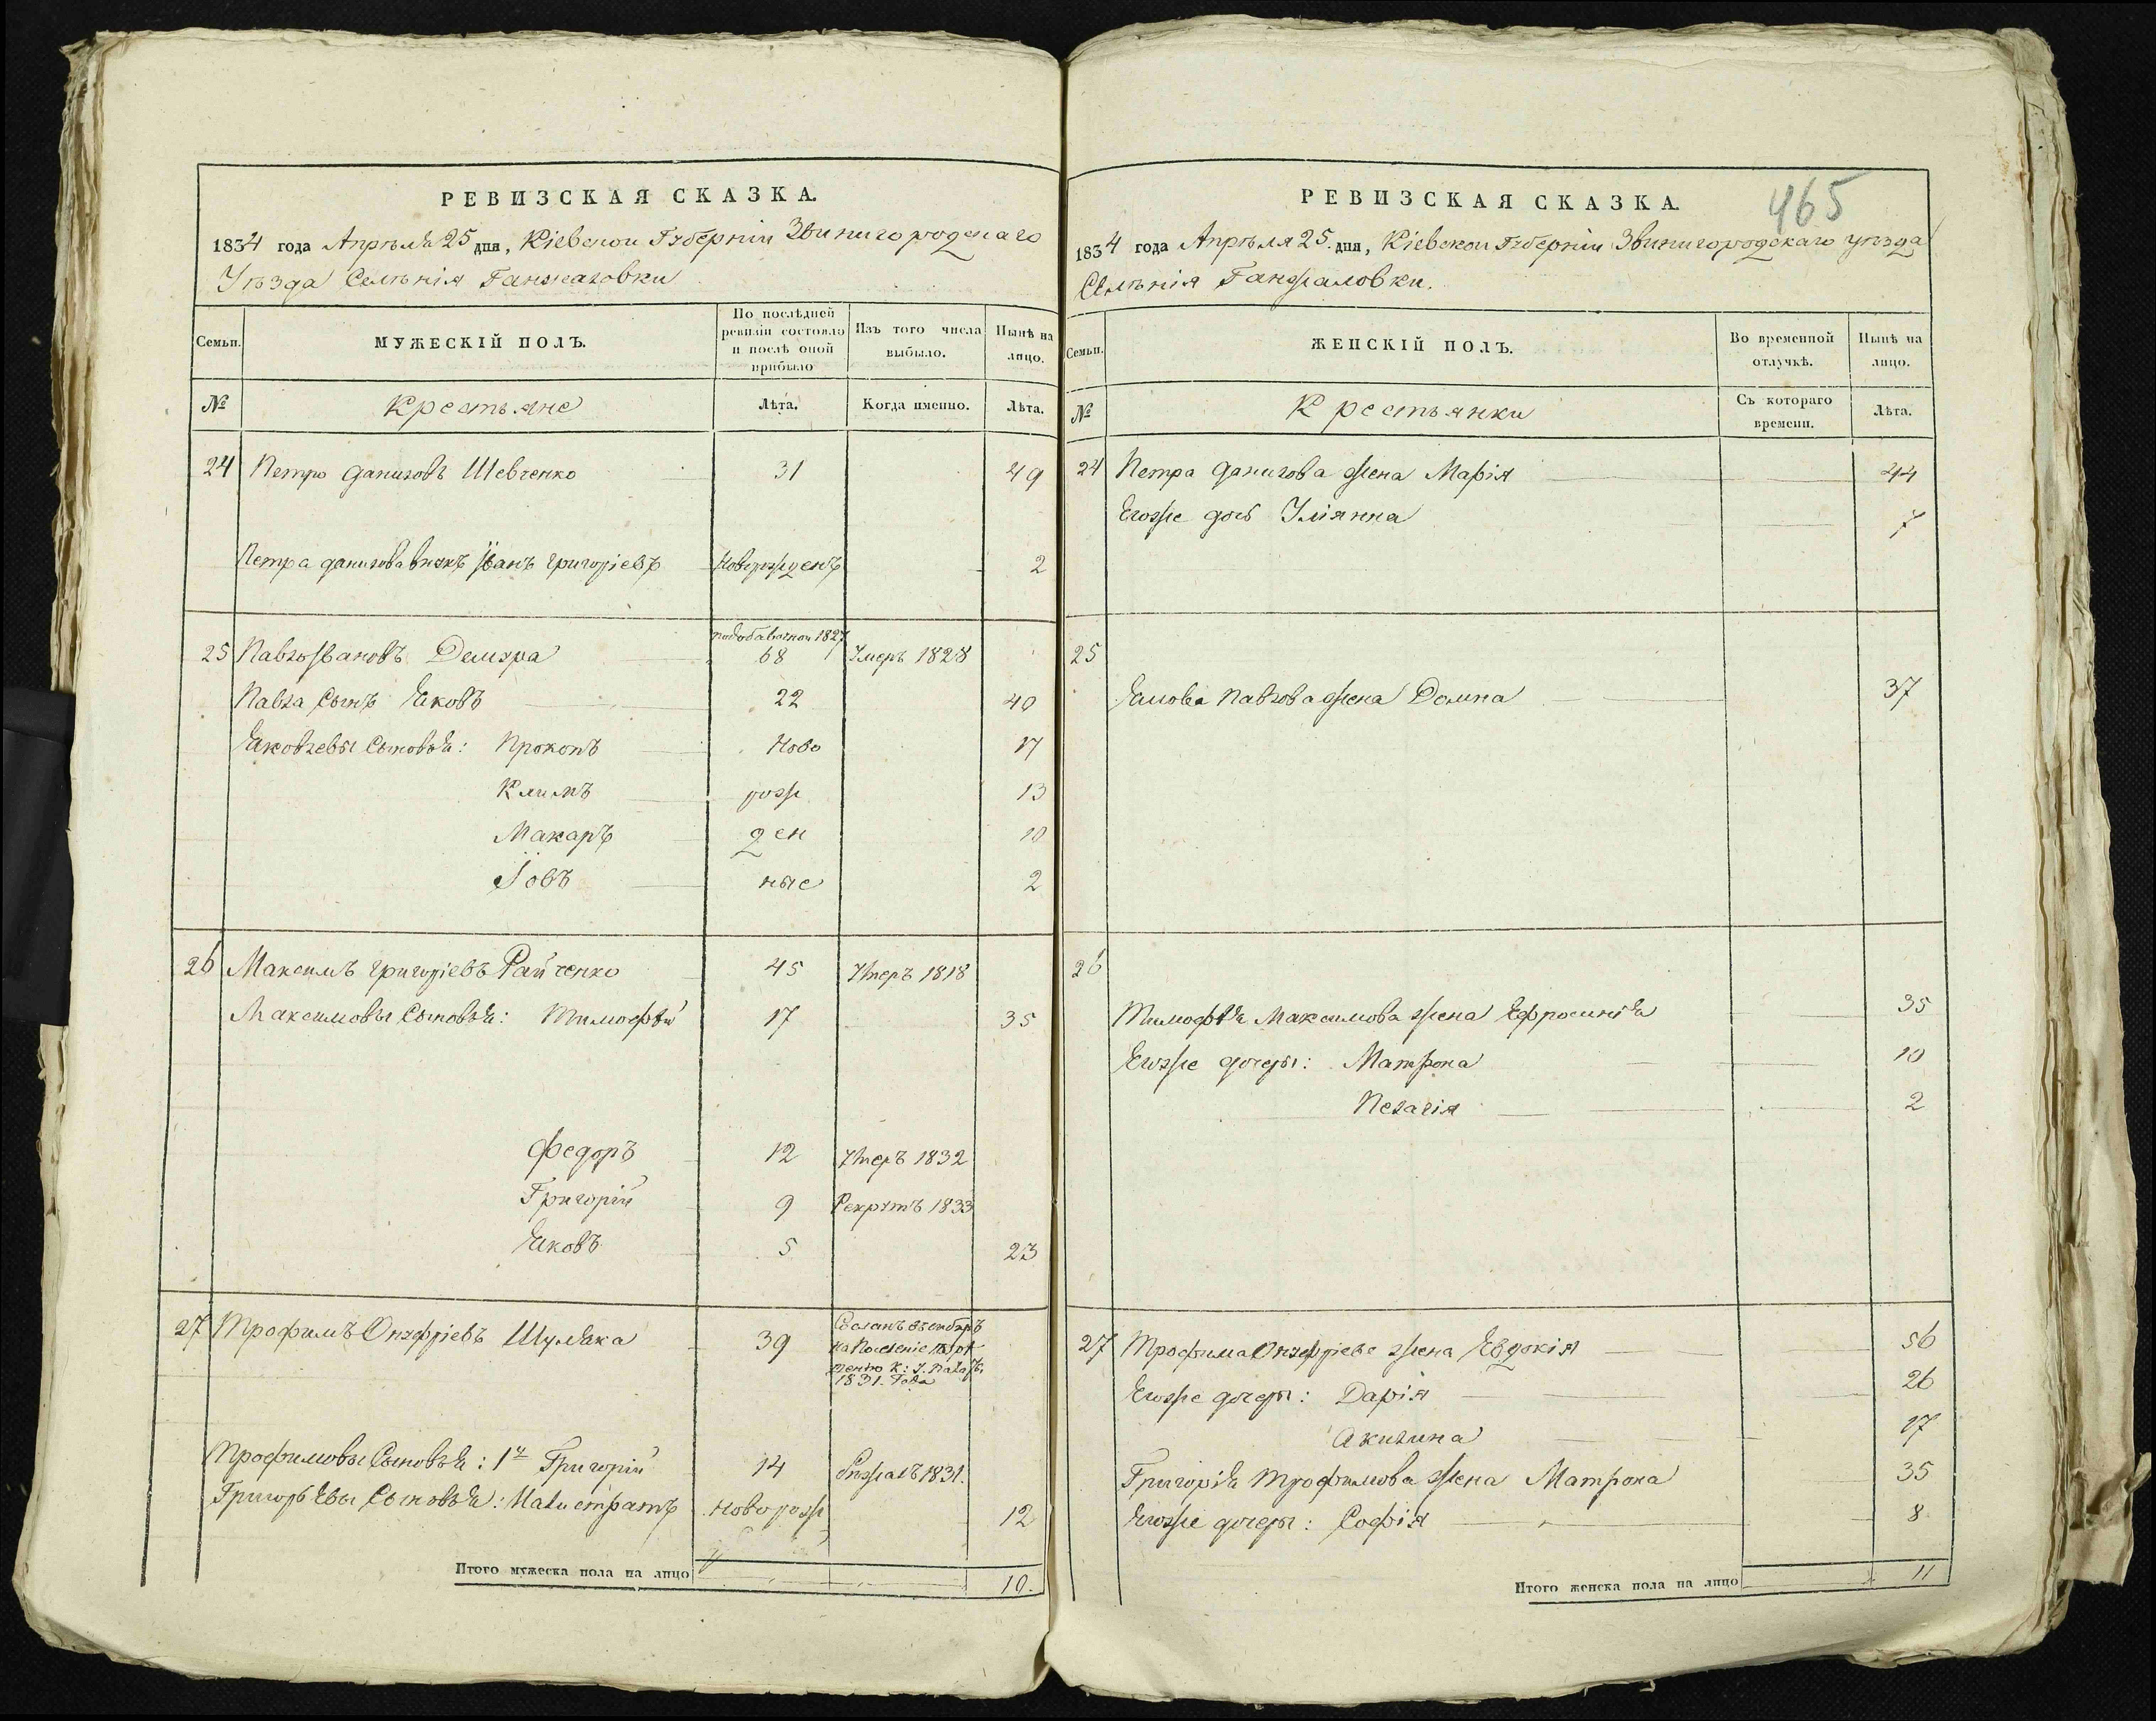 РЕВИЗСКАЯ СКАЗКА.
1834 года Апрѣля 25 дня, Кіевской Губерніи Звинигородскаго
Уѣзда Селѣнія Ганжаловки
Семьи.
МУЖЕСКІЙ ПОЛЪ.
По послѣдней ревизіи состояло и послѣ оной прибыло
Изъ того числа выбыло.
Нынѣ на лицо.
№
Крестьяне
Лѣта.
Когда именно.
Лѣта.
24 Петро Даниловъ Шевченко 31 49
Петра Данилова внукъ Іванъ Григоріевъ Новорожденъ 2
по добавочной 1827
25 Павло Івановъ Демура 68 Умеръ 1828
Павла Сынъ Яковъ 22 40
Яковлевы Сыновья: Прокопъ Ново 17
Климъ рож 13
Макаръ ден 10
Іовъ ные 2
26 Максимъ Григоріевъ Райченко 45 Умеръ 1818
Максимовы Сыновья: Тимофѣй 17 35
Федоръ 12 Умеръ 1832
Григорій 9 Рекрутъ 1833
Яковъ 5 23
27 Трофимъ Онуфріевъ Шуляка 39 Сосланъ
на Поселеніе
1831. Года
Трофимовы Сыновья: 1й Григорій 14 бѣжалъ 1831.
Григорьевы Сыновья: Калистратъ Новорож 12
Итого мужеска пола на лицо 10.
РЕВИЗСКАЯ СКАЗКА.
465
1834 года Апрѣля 25. дня, Кіевской Губерніи Звинигородскаго уѣзда
Селѣнія Ганжаловки.
Семьи.
ЖЕНСКІЙ ПОЛЪ.
Во временной отлучкѣ.
Нынѣ на лицо.
№
Крестьянки
Съ котораго времени.
Лѣта.
24 Петра Данилова жена Марія 44
Егоже дочь Уліянна 7
25
Якова Павлова жена Домна 37
26
Тимофѣя Максимова жена Ефросинія 35
Егоже дочеры: Матрона 10
Пелагія 2
27 Трофима Онуфріева жена Евдокія 56
Егоже дочеры: Дарія 26
Акилина 17
Григорія Трофимова жена Матрона 35
Егоже дочеры: Софія 8
Итого женска пола на лицо 11